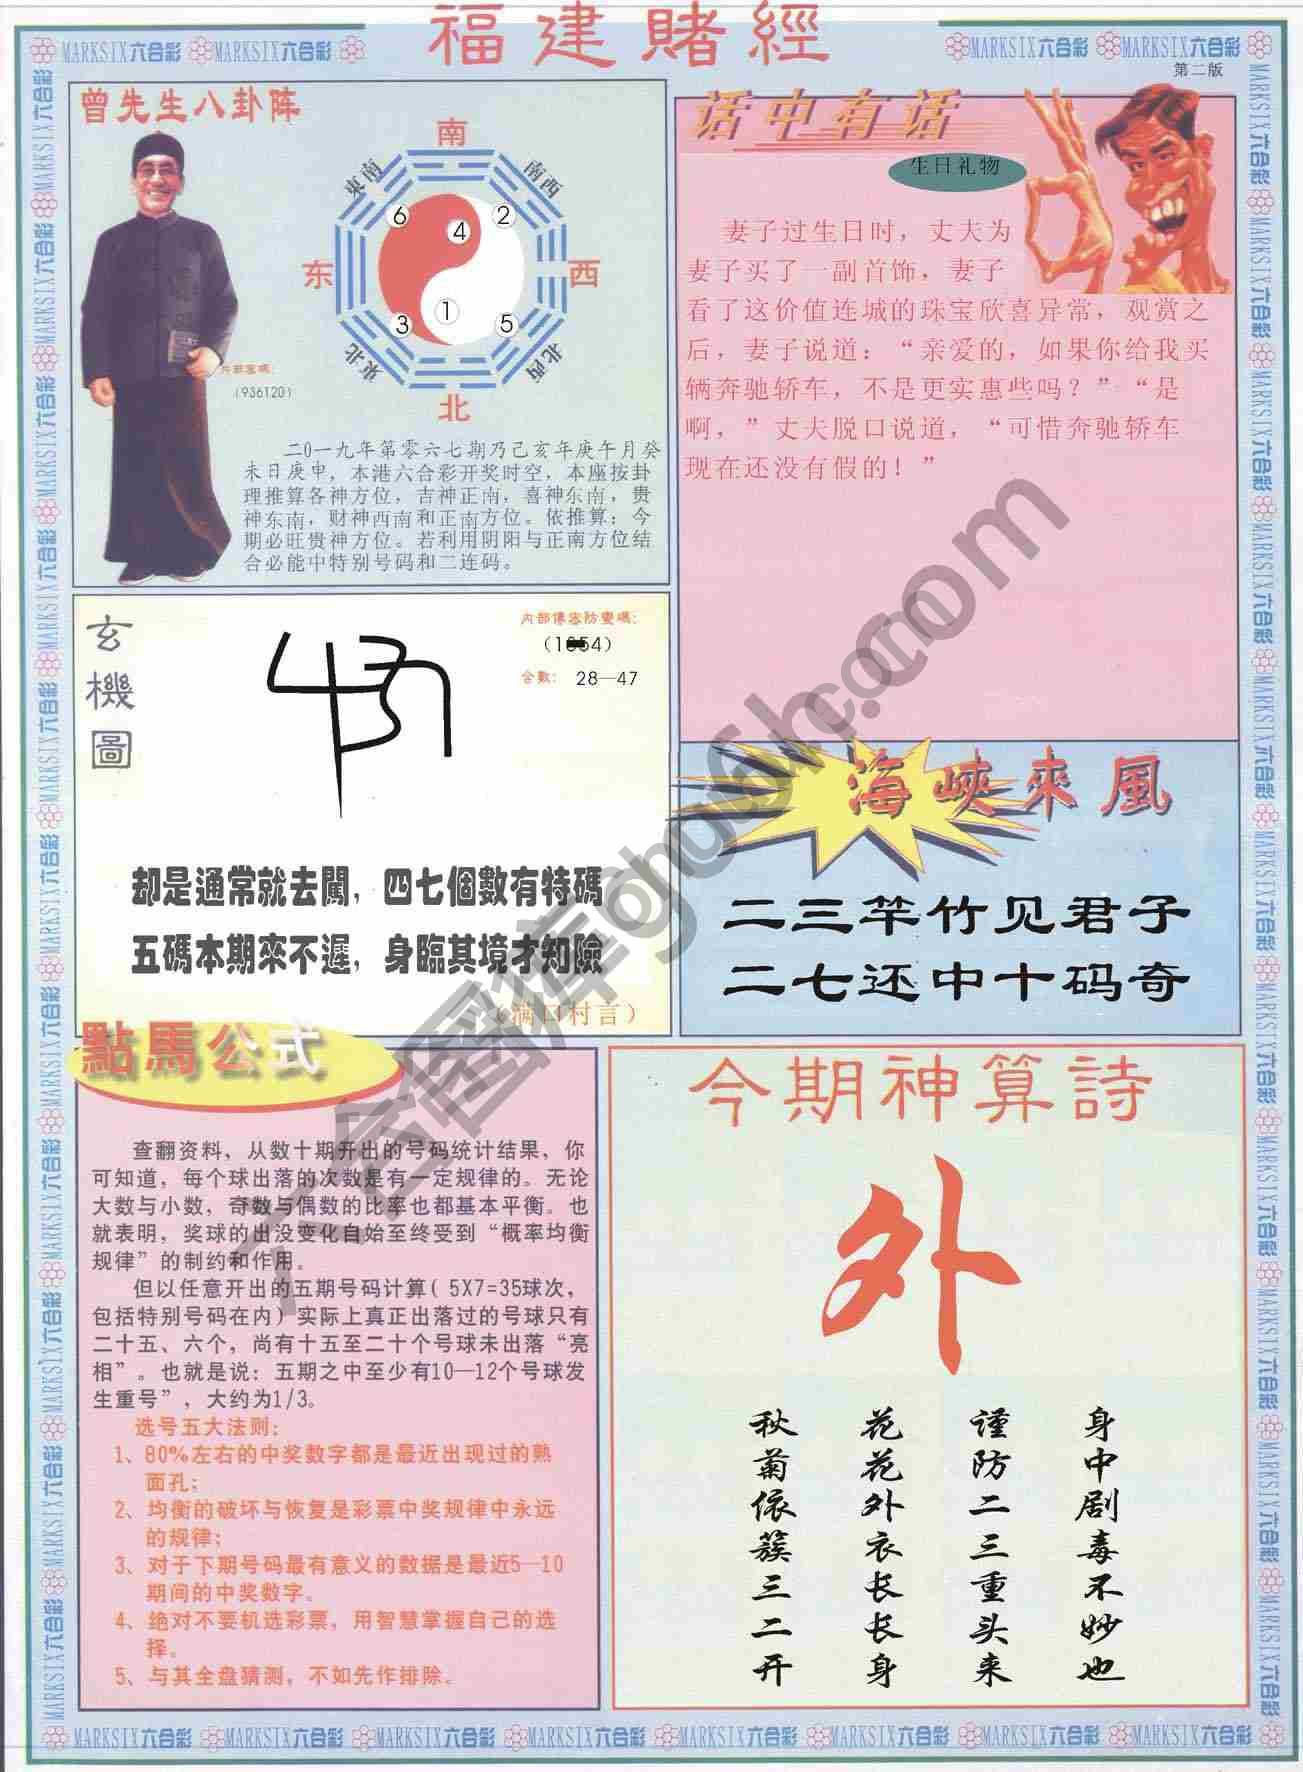 福建賭經
MARKSIX六合彩 MARKSIX六合彩
MARKSIX六合彩 MARKSIX六合彩
第二版
曾先生八卦阵
南
東南
南西
6
2
4
东
西
1
3
5
東北
北西
北
内部密碼：
（936120）
二0一九年第零六七期乃己亥年庚午月癸
未日庚申，本港六合彩开奖时空，本座按卦
理推算各神方位，吉神正南，喜神东南，贵
神东南，财神西南和正南方位。依推算；今
期必旺贵神方位。若利用阴阳与正南方位结
合必能中特别号码和二连码。
话中有话
生日礼物
妻子过生日时，丈夫为
妻子买了一副首饰，妻子
看了这价值连城的珠宝欣喜异常，观赏之
后，妻子说道：“亲爱的，如果你给我买
辆奔驰轿车，不是更实惠些吗？”“是
啊，”丈夫脱口说道，“可惜奔驰轿车
现在还没有假的！”
玄機圖
内部傳密防變碼：
合數： 28—47
却是通常就去闖，四七個數有特碼
五碼本期來不遲，身臨其境才知險
（满口村言）
海峽來風
二三竿竹见君子
二七还中十码奇
點馬公式
查翻资料，从数十期开出的号码统计结果，你
可知道，每个球出落的次数是有一定规律的。无论
大数与小数，奇数与偶数的比率也都基本平衡。也
就表明，奖球的出没变化自始至终受到“概率均衡
规律”的制约和作用。
但以任意开出的五期号码计算( 5X7=35球次，
包括特别号码在内)实际上真正出落过的号球只有
二十五、六个，尚有十五至二十个号球未出落“亮
相”。也就是说：五期之中至少有10—12个号球发
生重号”，大约为1/3。
选号五大法则：
1、80%左右的中奖数字都是最近出现过的熟
面孔；
2、均衡的破坏与恢复是彩票中奖规律中永远
的规律；
3、对于下期号码最有意义的数据是最近5—10
期间的中奖数字。
4、绝对不要机选彩票，用智慧掌握自己的选
择。
5、与其全盘猜测，不如先作排除。
今期神算詩
外
秋菊依簇三二开
花花外衣长长身
谨防二三重头来
身中剧毒不妙也
MARKSIX六合彩 MARKSIX六合彩 MARKSIX六合彩 MARKSIX六合彩 MARKSIX六合彩 MARKSIX六合彩 MARKSIX六合彩 MARKSIX六合彩